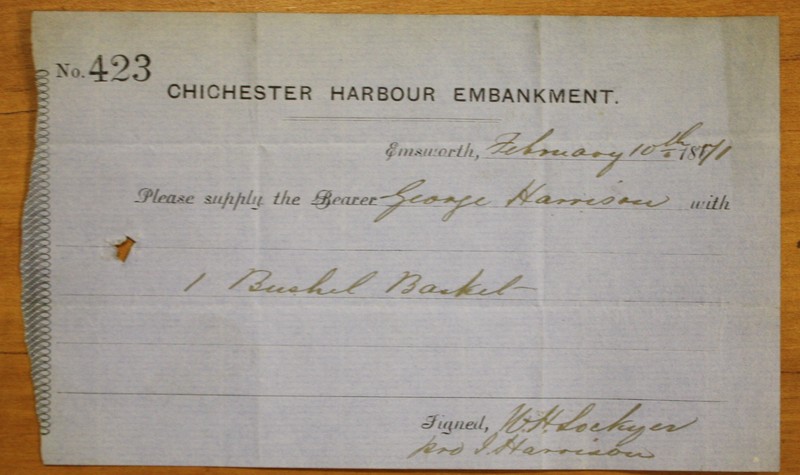 No. 423
CHICHESTER HARBOUR EMBANKMENT.
Emsworth, February 10th 1871
Please supply the Bearer George Harrison with
1 Bushel Basket
Signed, W. H. Lockyer
pro J Harrison